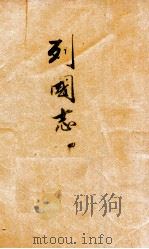 列國志 四
研狗
mtoou.info